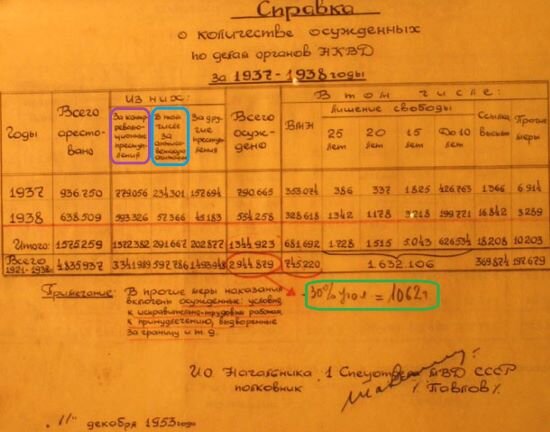 Справка
о количестве осужденных
по делам органов НКВД
за 1937-1938 годы
Годы
Всего арестовано
Из них:
За контрреволюционные преступления
В том числе за антисоветскую агитацию
За другие преступления
Всего осуждено
В том числе:
ВМН
лишение свободы
25 лет
20 лет
15 лет
До 10 лет
Ссылка высылк.
Прочие меры
1937 936.750 779.056 234.301 157.694 790.665 353.074 386 337 1.825 426.763 1.366 6.914
1938 638.509 593.326 57.366 45.183 554.258 328.618 1342 1178 3.218 199.771 16.842 3.289
Итого: 1.575.259 1.372.382 291.667 202.877 1.344.923 681.692 1.728 1.515 5.043 626.534 18.208 10.203
Всего 1921-1938г. 4.835.937 3.341.989 597.786 1.493.948 2.944.879 745.220 1.632.106 369.874 197.679
Примечание: В прочие меры наказания
включены осужденные: условно
к исправительно-трудовым работам
к принудлечению, выдворенные
за границу и т.д.
30% угол = 1062т
И.О. Начальника 1 Спецотдела МВД СССР
полковник /Павлов/
"11" декабря 1953 года